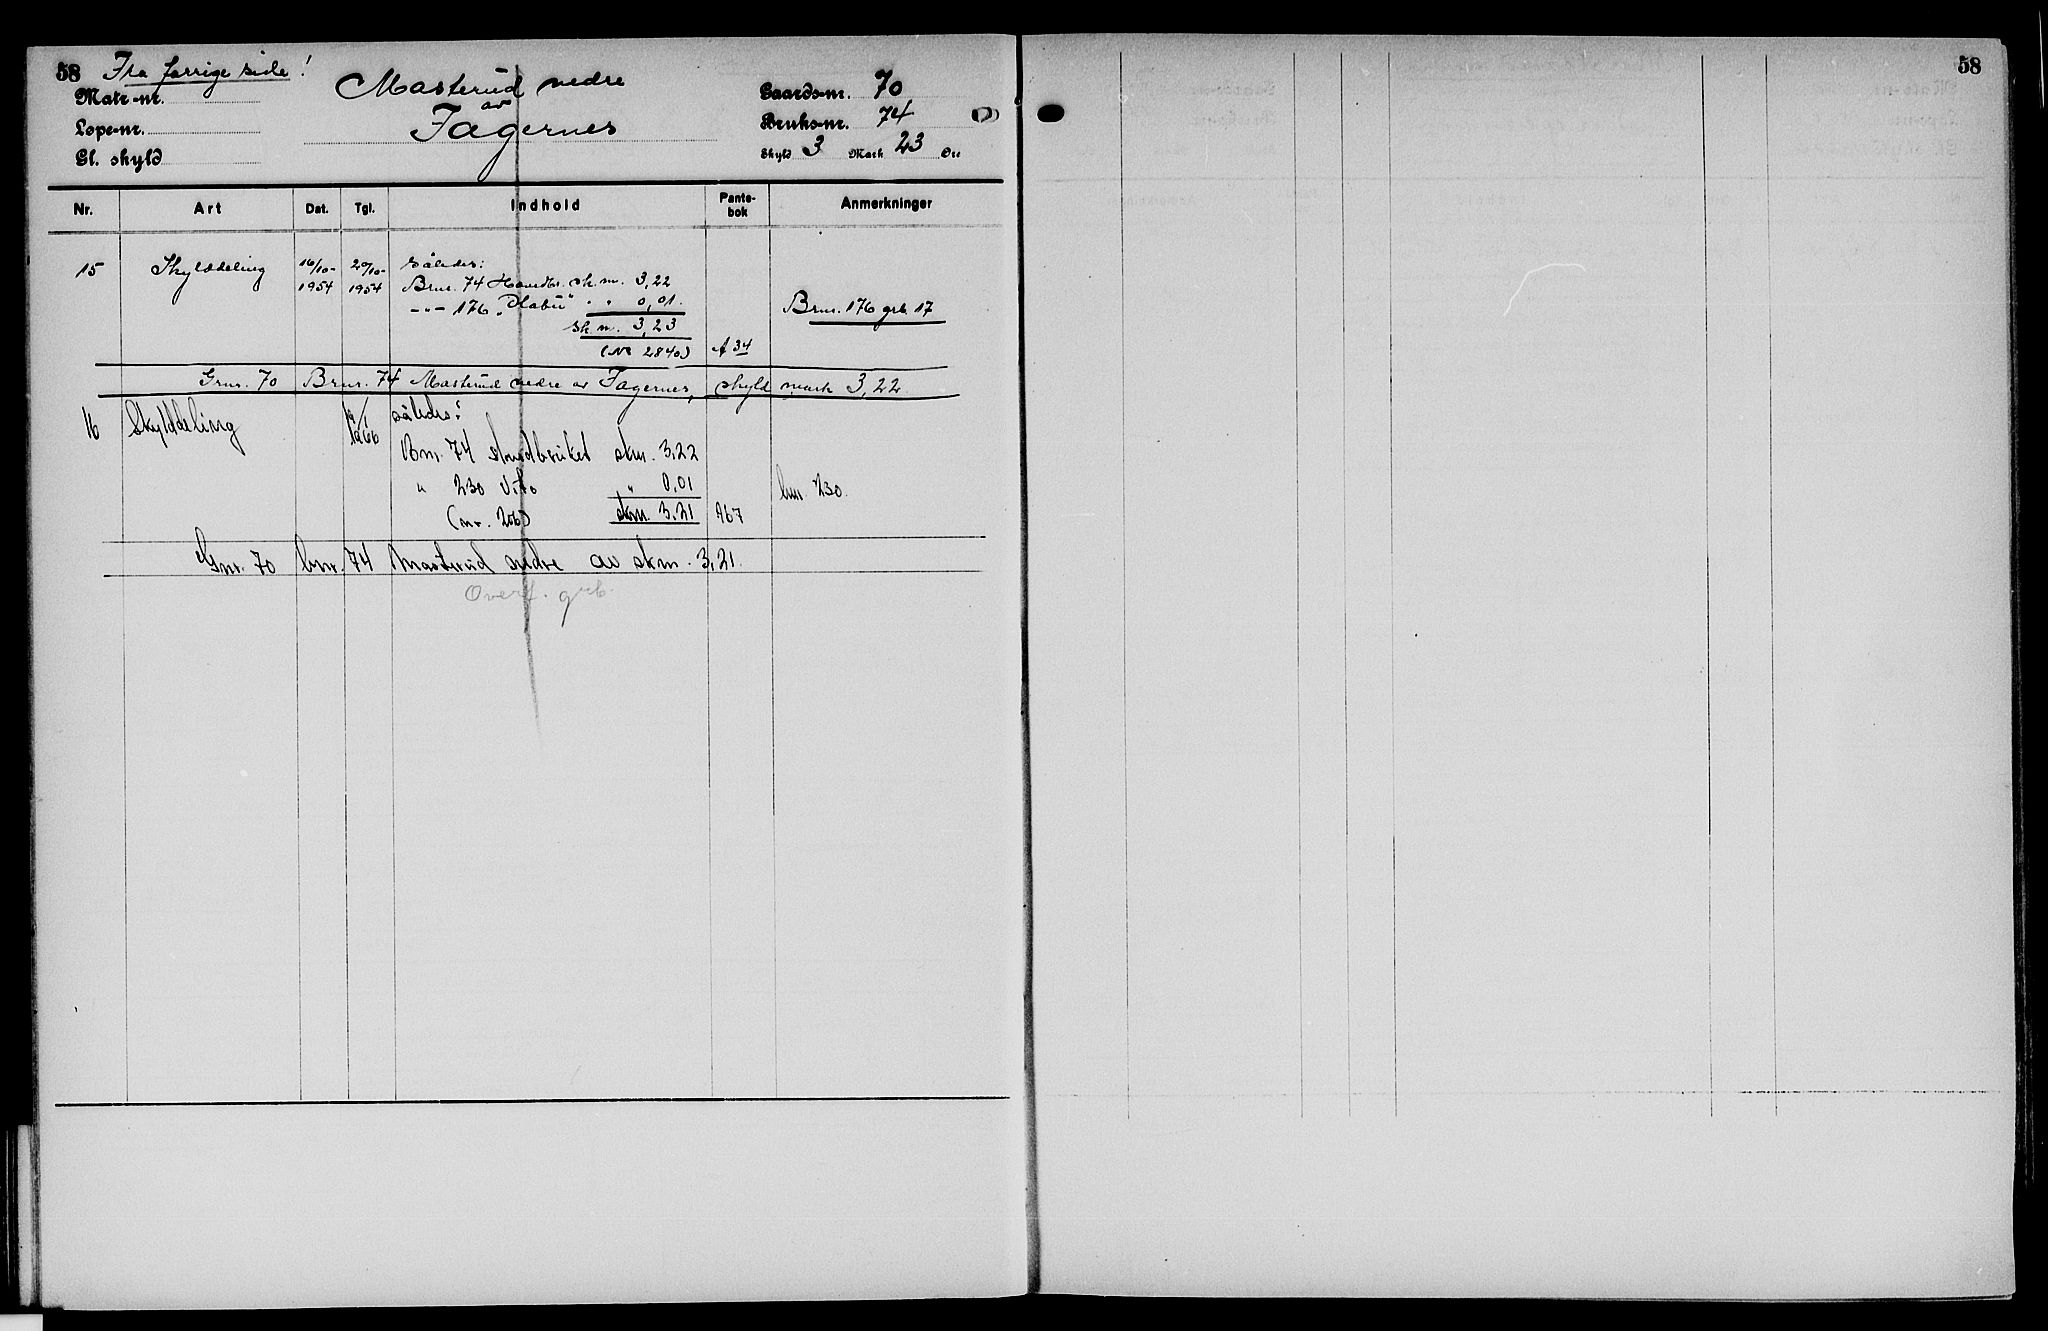 58 Fra forrige side!
Masterud nedre
av
Fagernes
Matr-nr.
Lope-nr.
Gl. skyld
Gaards-nr. 70
Bruks-nr. 74
Skyld 3 Mark 23 Øre
Nr. Art Dat. Tgl. Indhold Pante-bok Anmerkninger
15 Skylddeling 16/10- 1954 20/10- 1954 således:
Brnr. 74 Hovedbr. sk.m. 3,22
-"- 176 " " 0,01.
Sk. m. 3,23
(Nr 2840) A 34
Brnr. 176 grb. 17
Grnr. 70 Brnr. 74 Masterud nedre av Fagernes, skyld mark 3,22
16 Skylddeling således:
Bnr. 74 Hovedbruket skm. 3,22
" 230 " 0,01
skm. 3,21 A67
bnr 230.
Gnr. 70 bnr. 74 Masterud nedre av skm. 3,21.
Overf. grb.
58